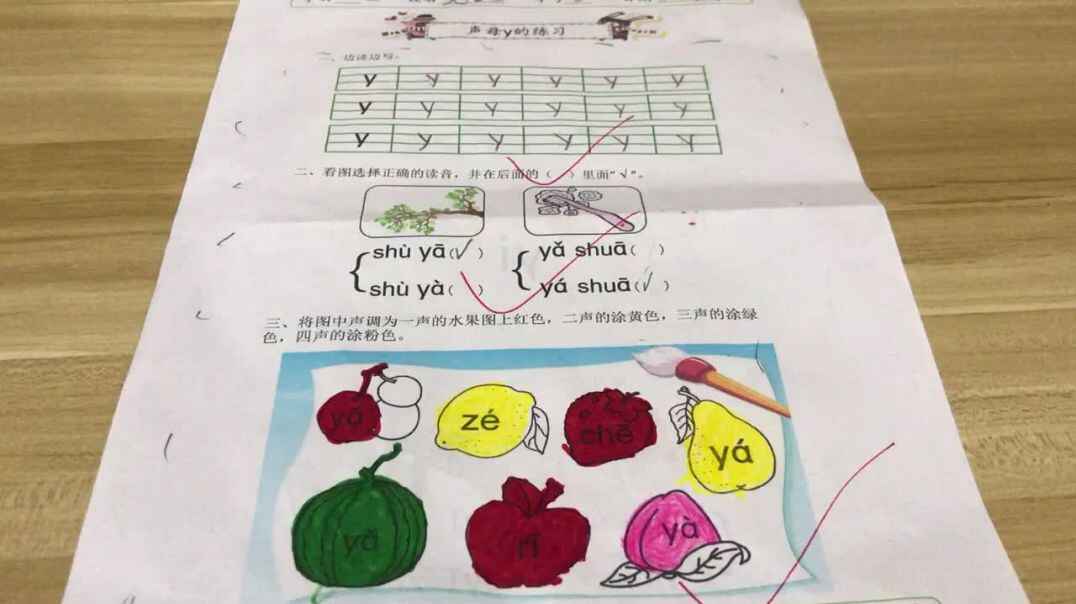 声母y的练习
一、边读边写。
y y y y y y
y y y y y y
y y y y y y
二、看图选择正确的读音，并在后面的（ ）里面“√”。
shù yā（√） yǎ shuā（ ）
shù yà（ ） yá shuā（√）
三、将图中声调为一声的水果图上红色，二声的涂黄色，三声的涂绿
色，四声的涂粉色。
yā zé chē yá
yǎ yà